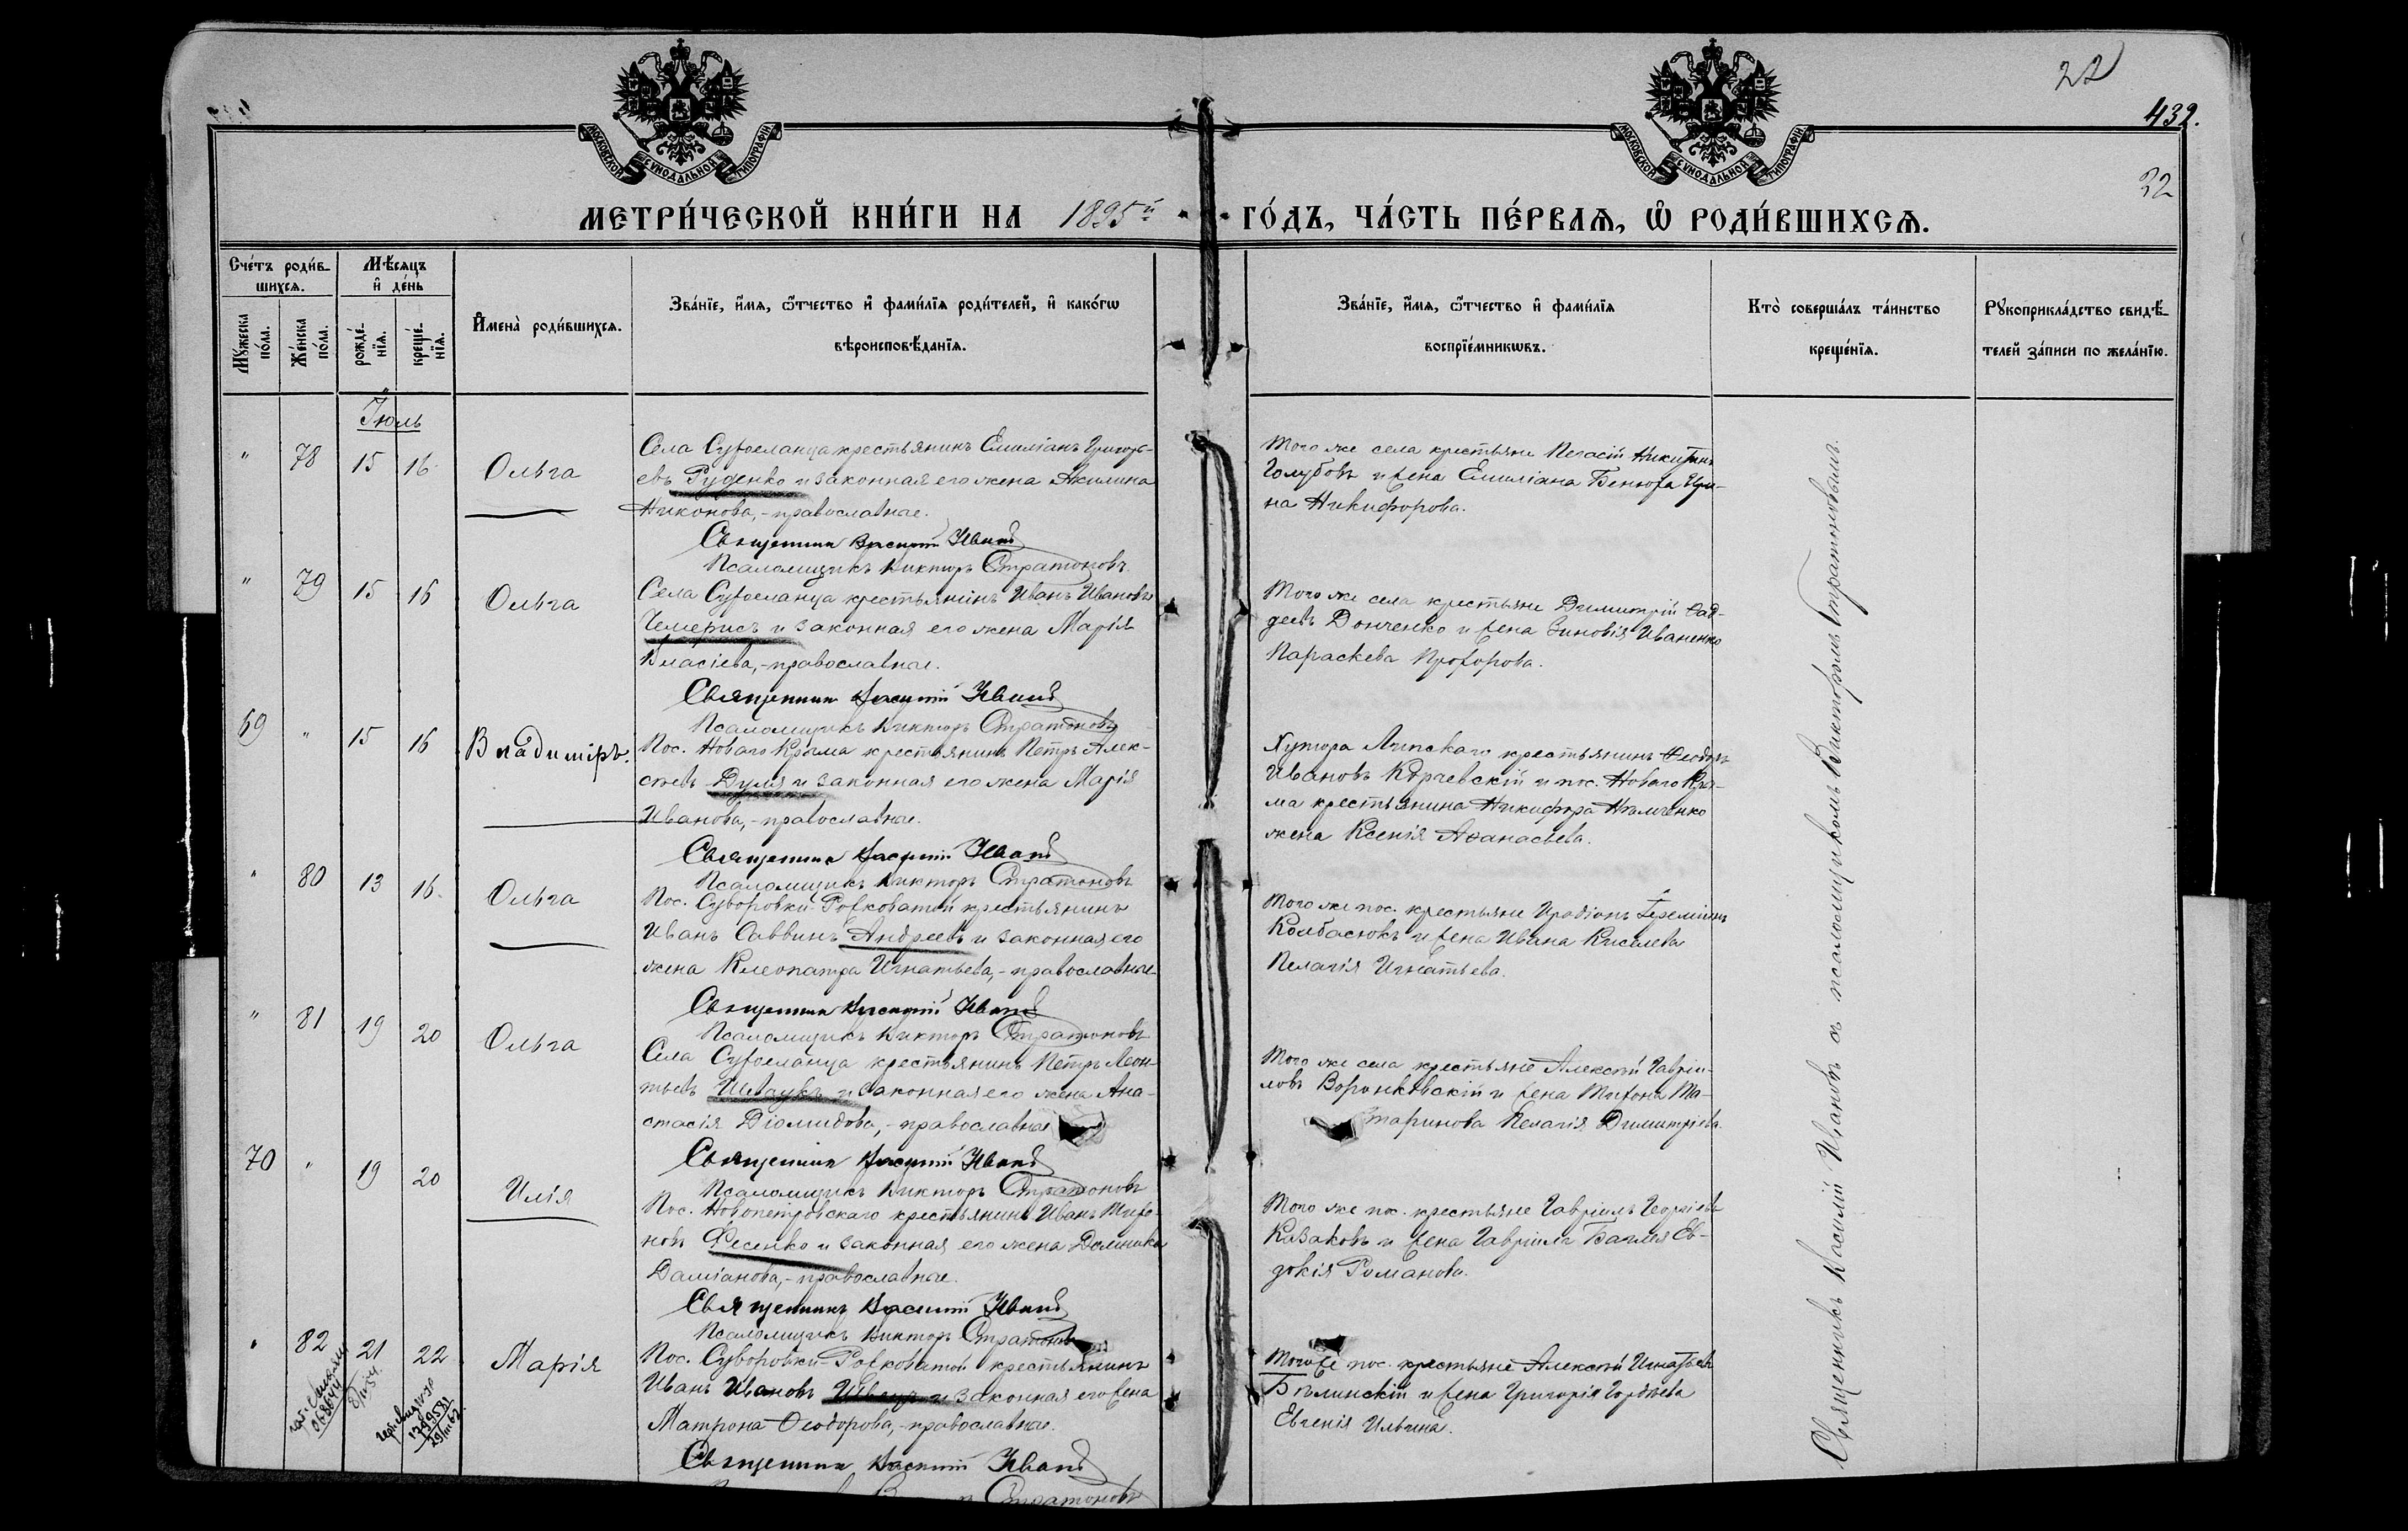 22
432.
32
МОСКОВСКОЙ СѴНОДАЛЬНОЙ ТИПОГРАФІИ
МОСКОВСКОЙ СѴНОДАЛЬНОЙ ТИПОГРАФІИ
МЕТРИ́ЧЕСКОЙ КНИ́ГИ НА 1895й ГО́ДЪ, ЧА́СТЬ ПЕ́РВАѦ, Ѡ҆ РОДИ́ВШИХСѦ.
Сче́тъ роди́в-
шихсѧ.
Мꙋ́жеска по́ла.
Же́нска по́ла.
Мѣ́сѧцъ
и҆ де́нь
рожде́-
нїѧ.
креще́-
нїѧ.
И҆мена̀ роди́вшихсѧ.
Зва́нїе, и҆́мѧ, ѻ҆́тчество и҆ фами́лїѧ роди́телей, и҆ како́гѡ
вѣроисповѣ́данїѧ.
Зва́нїе, и҆́мѧ, ѻ҆́тчество и҆ фами́лїѧ
воспрїе́мникѡвъ.
Кто̀ соверша́лъ та́инство
креще́нїѧ.
Рꙋкоприкла́дство свидѣ́-
телей за́писи по жела́нїю.
Іюль
" 78 15 16 Ольга
Села Сухоеланца крестьянинъ Емиліанъ Григорь-
евъ Руденко и законная его жена Акилина
Никонова, - православные.
Священникъ Василій Ивановъ
Псаломщикъ Викторъ Стратоновъ
Того же села крестьяне Пегасій Никитинъ
Голубовъ и жена Емиліана Ири-
на Никифорова.
" 79 15 16 Ольга
Села Сухоеланца крестьянинъ Иванъ Ивановъ
Чемерисъ и законная его жена Марія
Власіева, - православные.
Священникъ Василій Ивановъ
Псаломщикъ Викторъ Стратоновъ
Того же села крестьяне Димитрій Ѳад-
деевъ Донченко и жена Зиновія Иваненко
Параскева Прохорова.
69 " 15 16 Владиміръ.
Пос. Новаго Крыма крестьянинъ Петръ Алек-
сѣевъ Дуля и законная его жена Марія
Иванова, - православные.
Священникъ Василій Ивановъ
Псаломщикъ Викторъ Стратоновъ
Хутора Липскаго крестьянинъ Ѳеодоръ
Ивановъ Корчевскій и пос. Новаго Кры-
ма крестьянина Никифора
жена Ксенія Аѳанасьева.
" 80 13 16. Ольга
Пос. Суворовки-Рохковатой крестьянинъ
Иванъ Саввинъ Андреевъ и законная его
жена Клеопатра Игнатьева, - православные.
Священникъ Василій Ивановъ
Псаломщикъ Викторъ Стратоновъ
Того же пос. крестьяне Иродіонъ Іереміинъ
Колбасюкъ и жена Ивана Киселева
Пелагія Игнатьева.
" 81 19 20 Ольга
Села Сухоеланца крестьянинъ Петръ Леон-
тьевъ Шевчукъ и законная его жена Ана-
стасія Діомидова, - православные
Священникъ Василій Ивановъ
Псаломщикъ Викторъ Стратоновъ
Того же села крестьяне Алексѣй Гавріи-
ловъ Воронковскій и жена Тихона Та-
таринова Пелагія Димитріева.
70 " 19 20 Илія
Пос. Новопетровскаго крестьянинъ Иванъ Тихо-
новъ Фесенко и законная его жена Домникія
Даміанова, - православные.
Священникъ Василій Ивановъ
Псаломщикъ Викторъ Стратоновъ
Того же пос. крестьяне Гавріилъ Георгіевъ
Казаковъ и жена Гавріила Багмея Ев-
докія Романова.
" 82 21 22 Марія
Пос. Суворовки-Рохковатой крестьянинъ
Иванъ Ивановъ Швецъ и законная его жена
Матрона Ѳеодорова, - православные.
Священникъ Василій Ивановъ
Стратоновъ
Того же пос. крестьяне Алексѣй Игнатьевъ
Бѣлинскій и жена Григорія Гордѣева
Евгенія Ильина.
Священникъ Василій Ивановъ съ псаломщикомъ Викторомъ Стратоновымъ.